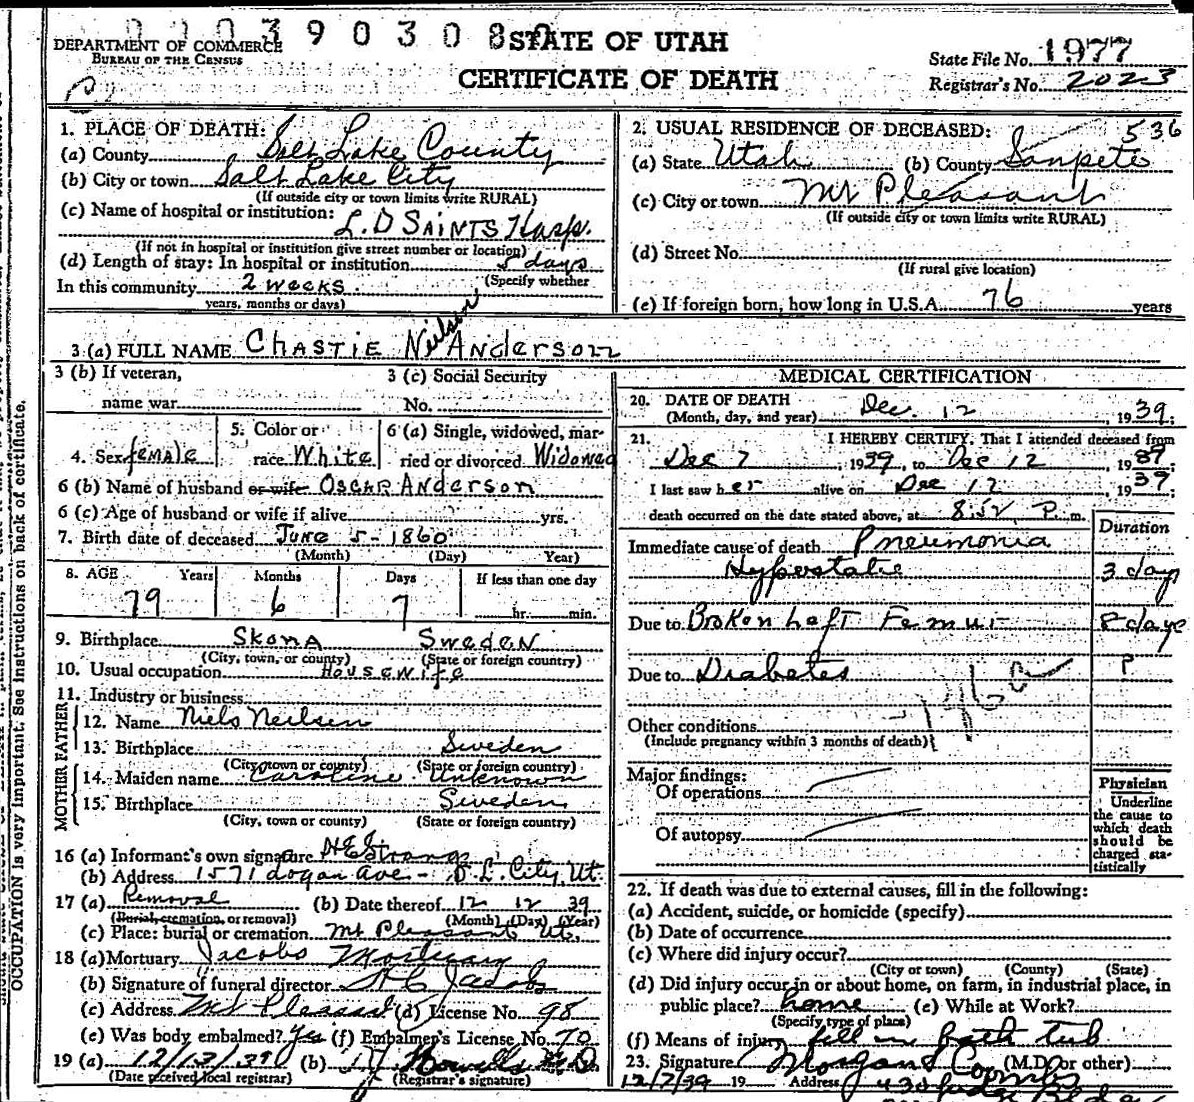 0 1 0 3 9 0 3 0 8
DEPARTMENT OF COMMERCE
BUREAU OF THE CENSUS
STATE OF UTAH
CERTIFICATE OF DEATH
State File No. 1977
Registrar's No. 2023
1. PLACE OF DEATH:
(a) County Salt Lake County
(b) City or town Salt Lake City
(If outside city or town limits write RURAL)
(c) Name of hospital or institution:
L.D SAINTS Hosp.
(If not in hospital or institution give street number or location)
(d) Length of stay: In hospital or institution 5 days
(Specify whether
In this community 2 weeks
years, months or days)
2. USUAL RESIDENCE OF DECEASED: 536
(a) State Utah (b) County Sanpete
(c) City or town Mt Pleasant
(If outside city or town limits write RURAL)
(d) Street No.
(If rural give location)
(e) If foreign born, how long in U.S.A. 76 years
3 (a) FULL NAME Chastie Neilson Anderson
3 (b) If veteran, 3 (c) Social Security
name war No.
4. Sex female 5. Color or race White 6 (a) Single, widowed, married or divorced Widowed
6 (b) Name of husband or wife Oscar Anderson
6 (c) Age of husband or wife if alive yrs.
7. Birth date of deceased June 5 - 1860
(Month) (Day) Year)
8. AGE Years Months Days If less than one day
79 6 7 hr. min.
9. Birthplace Skona Sweden
(City, town, or county) (State or foreign country)
10. Usual occupation Housewife
11. Industry or business
FATHER
12. Name Niels Neilsen
13. Birthplace Sweden
(City, town or county) (State or foreign country)
MOTHER
14. Maiden name Caroline Unknown
15. Birthplace Sweden
(City, town or county) (State or foreign country)
16 (a) Informant's own signature
(b) Address 1571 Logan Ave - S.L. City, Ut.
17 (a) Removal (b) Date thereof 12 12 39
(Burial, cremation, or removal) (Month) (Day) (Year)
(c) Place: burial or cremation Mt Pleasant Ut.
18 (a) Mortuary Jacobs Mortuary
(b) Signature of funeral director A C Jacobs
(c) Address Mt Pleasant (d) License No. 98
(e) Was body embalmed? Yes (f) Embalmer's License No. 70
19 (a) 12/13/39 (b)
(Date received local registrar) (Registrar's signature)
MEDICAL CERTIFICATION
20. DATE OF DEATH
(Month, day, and year) Dec. 12, 1939.
21. I HEREBY CERTIFY, That I attended deceased from
Dec 7, 1939, to Dec 12, 1939
I last saw her alive on Dec 12, 1939
death occurred on the date stated above, at 8:52 P. m.
Duration
Immediate cause of death Pneumonia
Hypostatic 3 days
Due to Broken Left Femur 8 days
Due to Diabetes ?
Other conditions
(Include pregnancy within 3 months of death)
Major findings:
Of operations
Of autopsy
Physician
Underline the cause to which death should be charged statistically
22. If death was due to external causes, fill in the following:
(a) Accident, suicide, or homicide (specify)
(b) Date of occurrence
(c) Where did injury occur?
(City or town) (County) (State)
(d) Did injury occur in or about home, on farm, in industrial place, in
public place? home (e) While at Work?
(Specify type of place)
(f) Means of injury fell in bath tub
23. Signature Morgan Coombs (M.D. or other)
12/7/39 19 Address
OCCUPATION is very important. See instructions on back of certificate.